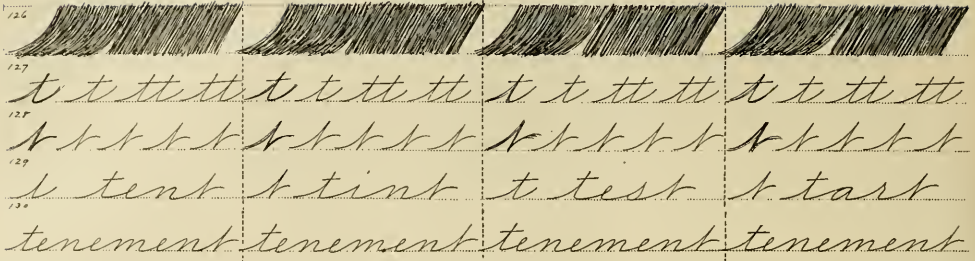 126
127
t t tt tt t t tt tt t t tt tt t t tt tt
128
t t t t t t t t t t t t t t t t t t t t
129
t tent t tint t test t tart
130
tenement tenement tenement tenement